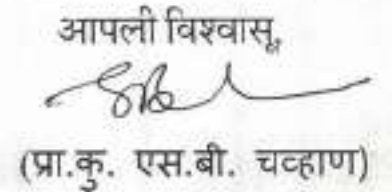 आपली विश्वासू,
(प्रा.कु. एस.बी. चव्हाण)